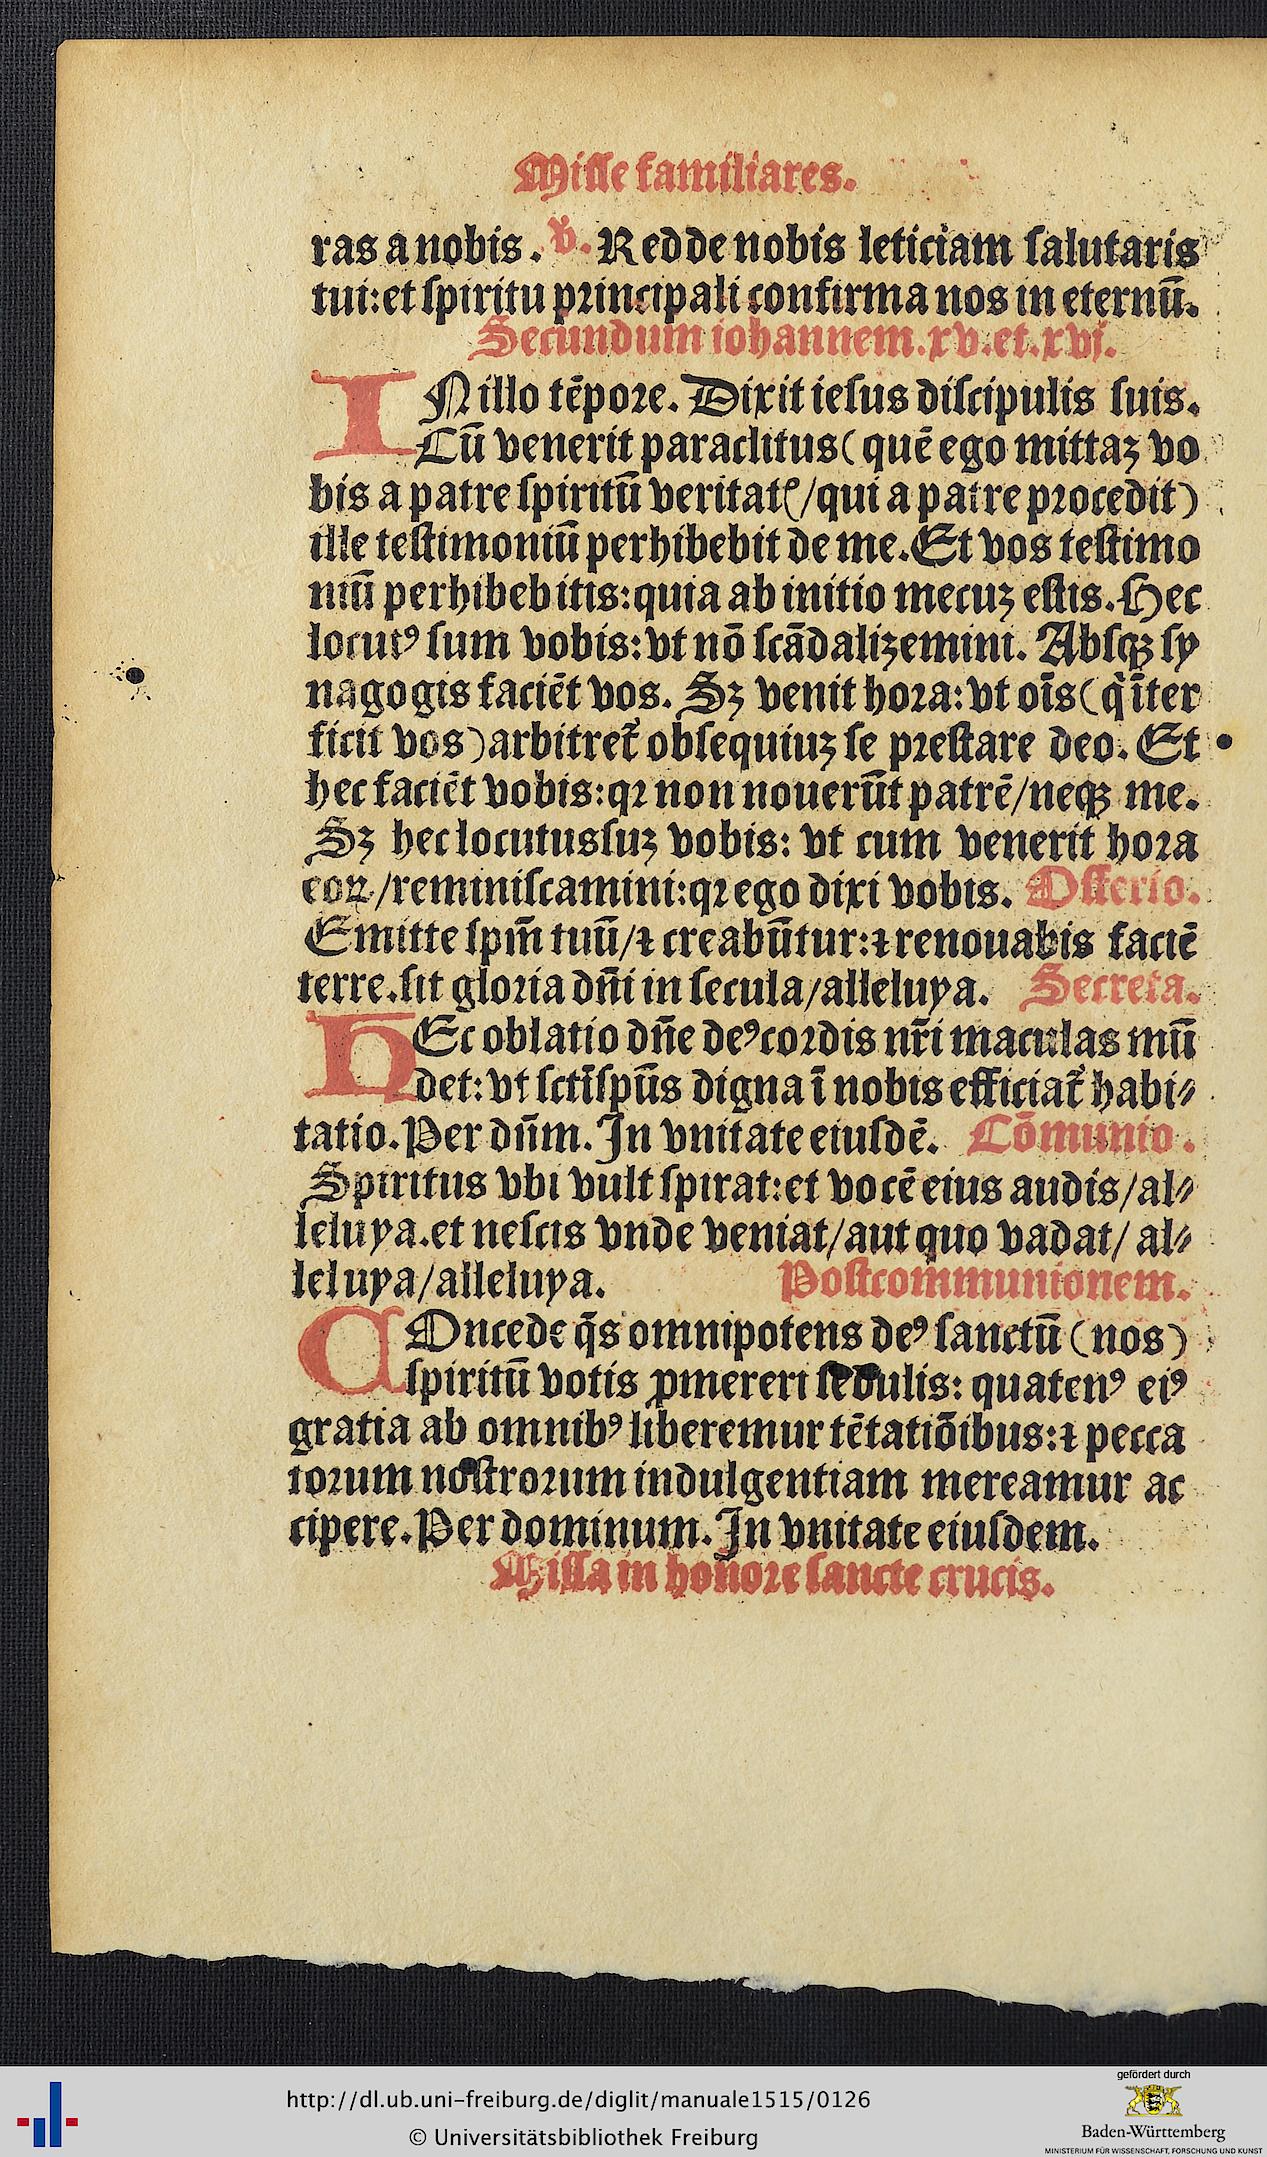 Misse familiares.
ras a nobis. v̄. Redde nobis leticiam salutaris
tui: et spiritu principali confirma nos in eternū.
Secundum iohannem. xv. et. xvj.
IN illo tēpore. Dixit iesus discipulis suis.
Cū venerit paraclitus (quē ego mittaꝫ vo
bis a patre spiritū veritatꝭ/qui a patre procedit)
ille testimoniū perhibebit de me. Et vos testimo
niū perhibebitis: quia ab initio mecuꝫ estis. Hec
locutꝰ sum vobis: vt nō scādalizemini. Absqꝫ sy
nagogis faciēt vos. Sꝫ venit hora: vt oīs (q̇ īter
ficit vos) arbitret᷑ obsequiuꝫ se prestare deo. Et
hec faciēt vobis: qꝛ non nouerūt patrē/neqꝫ me.
Sꝫ hec locutus suꝫ vobis: vt cum venerit hora
eoꝝ/reminiscamini: qꝛ ego dixi vobis. Offerio.
Emitte spm̄ tuū/⁊ creabūtur: ⁊ renouabis faciē
terre. sit gloria dn̄i in secula/alleluya. Secreta.
HEc oblatio dn̄e deꝰ cordis nr̄i maculas mū
det: vt sctī spūs digna ī nobis efficiat᷑ habi⸗
tatio. Per dūm. In vnitate eiusdē. Cōmunio.
Spiritus vbi vult spirat: et vocē eius audis/al⸗
leluya. et nescis vnde veniat/aut quo vadat/al⸗
leluya/alleluya. Postcommunionem.
COncede q̄s omnipotens deꝰ sanctū (nos)
spiritū votis ꝓmereri sedulis: quatenꝰ eiꝰ
gratia ab omnibꝰ liberemur tētatiōibus: ⁊ pecca
torum nostrorum indulgentiam mereamur ac
cipere. Per dominum. In vnitate eiusdem.
Missa in honore sancte crucis.
http://dl.ub.uni-freiburg.de/diglit/manuale1515/0126
© Universitätsbibliothek Freiburg
gefördert durch
Baden-Württemberg
MINISTERIUM FÜR WISSENSCHAFT, FORSCHUNG UND KUNST